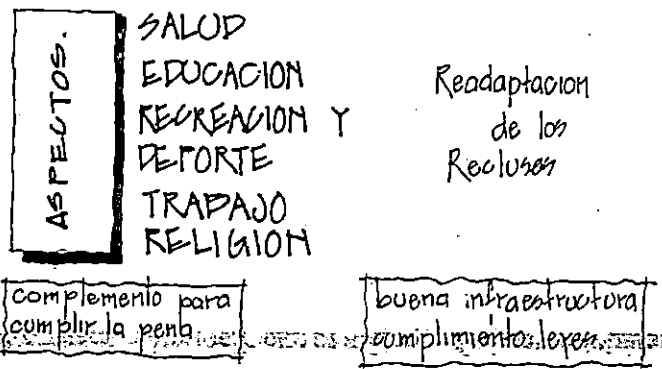 ASPECTOS.
SALUD
EDUCACION
RECREACION Y
DEPORTE
TRABAJO
RELIGION
Readaptacion
de los
Reclusos
complemento para
cumplir la pena
buena infraestructura
cumplimiento leyes